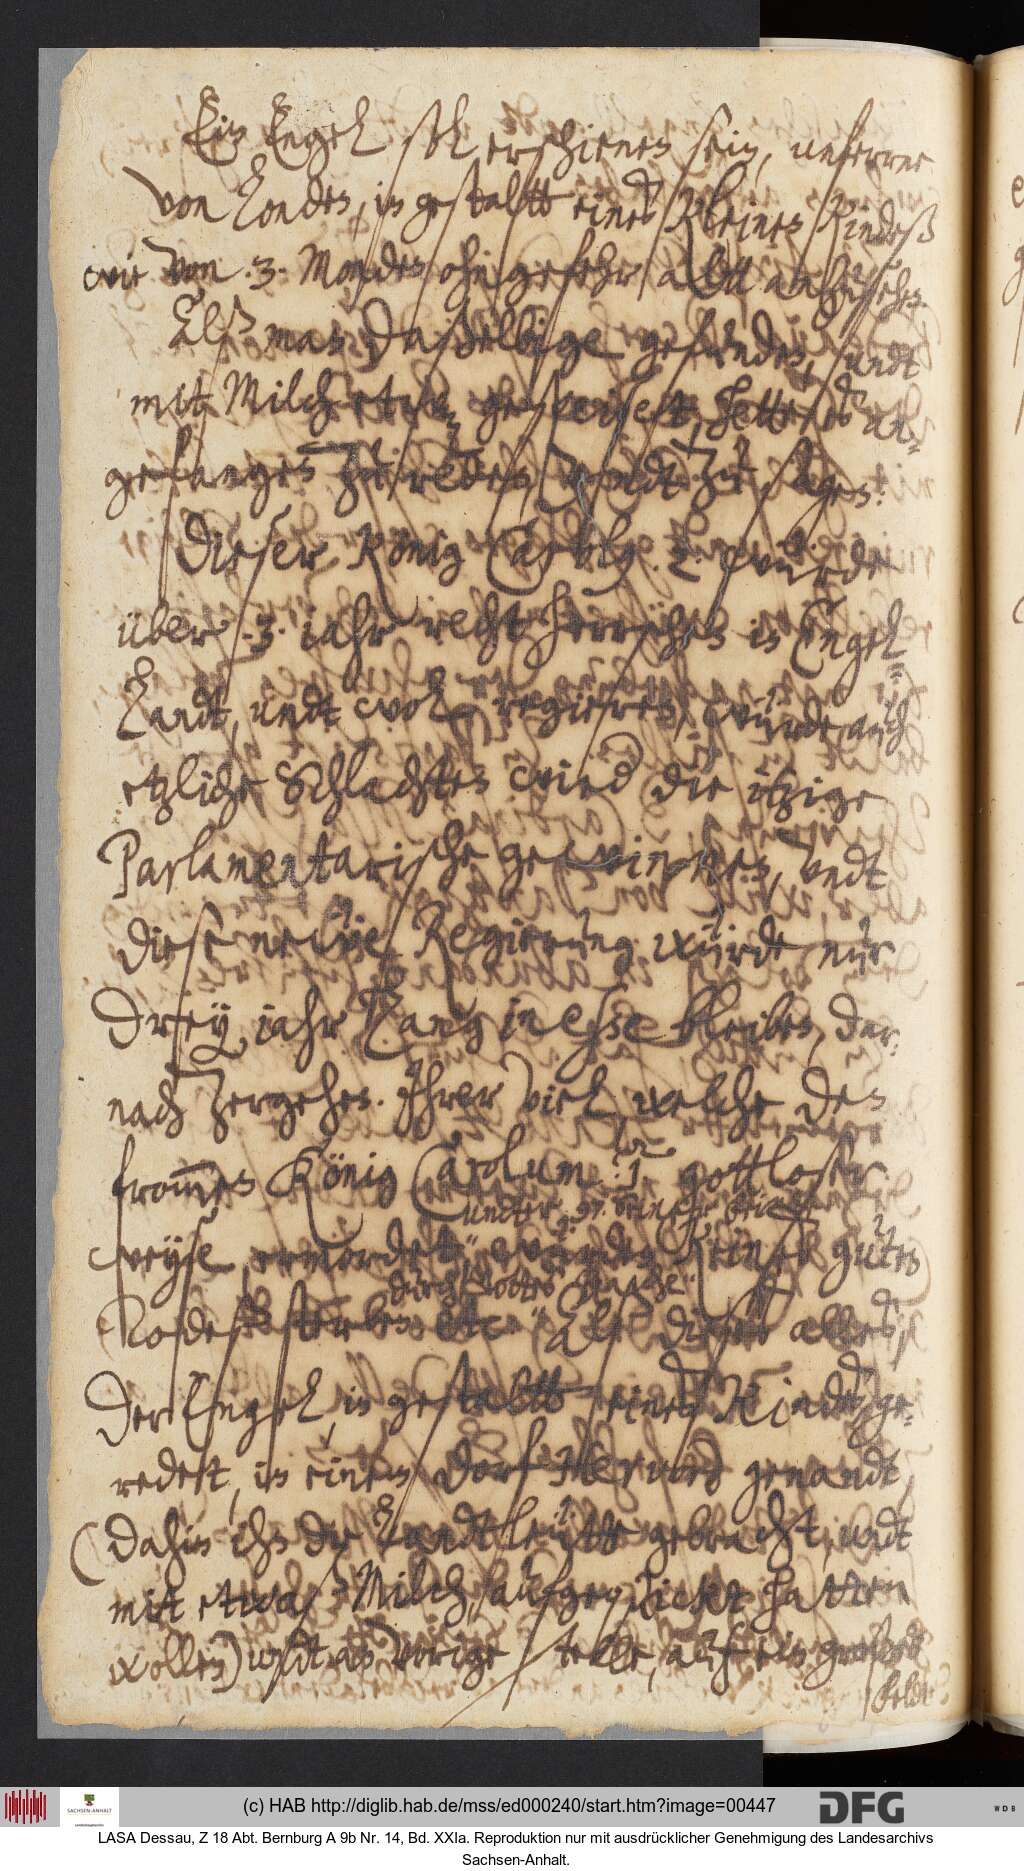 Ein Engel soll erschienen sein, unferrne
von Londen, in gestaltt eines kleinen Kindeß
wie von .3. Monden ohngefehr altt anzusehen.
Alß man daßelbige gefunden, undt
mitt Milch etwaß gespeiset, hette es an-
gefangen zu reden undt zu sagen:
Dieser König Carolus 2. würde
über .3. iahr recht herrschen in Engel-
landt, undt wol regieren, würde auch
etzliche Schlachten wieder die itzige
Parlamentarische gewinnen, undt
diese newe Regierung würde nur
Drey iahr lang in esse bleiben, dar-
nach zergehen. Ihrer viel welche den
frommen König Carolum .1. gottloser
weyse ermordet, würden keines guten
undter .97. seiner feinde
Todes sterben etc. Alß dieses alles
durch Gottes Rache
Der Engel, in gestaltt eines Kindes ge-
redett, in einem dorf genandt,
(Dahin ihn die Landtleütte gebracht, undt
mitt etwaß Milch, aufgequickt hatten
wollen) undt an vorige stelle, auf ein großes
feldt
(c) HAB http://diglib.hab.de/mss/ed000240/start.htm?image=00447
SACHSEN-ANHALT
DFG
WDB
LASA Dessau, Z 18 Abt. Bernburg A 9b Nr. 14, Bd. XXIa. Reproduktion nur mit ausdrücklicher Genehmigung des Landesarchivs
Sachsen-Anhalt.